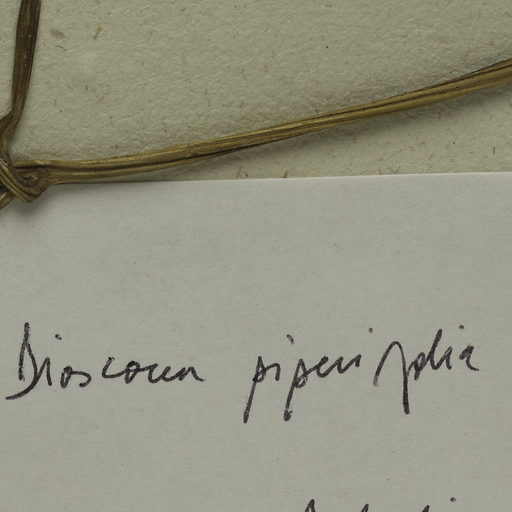 Dioscorea piperifolia